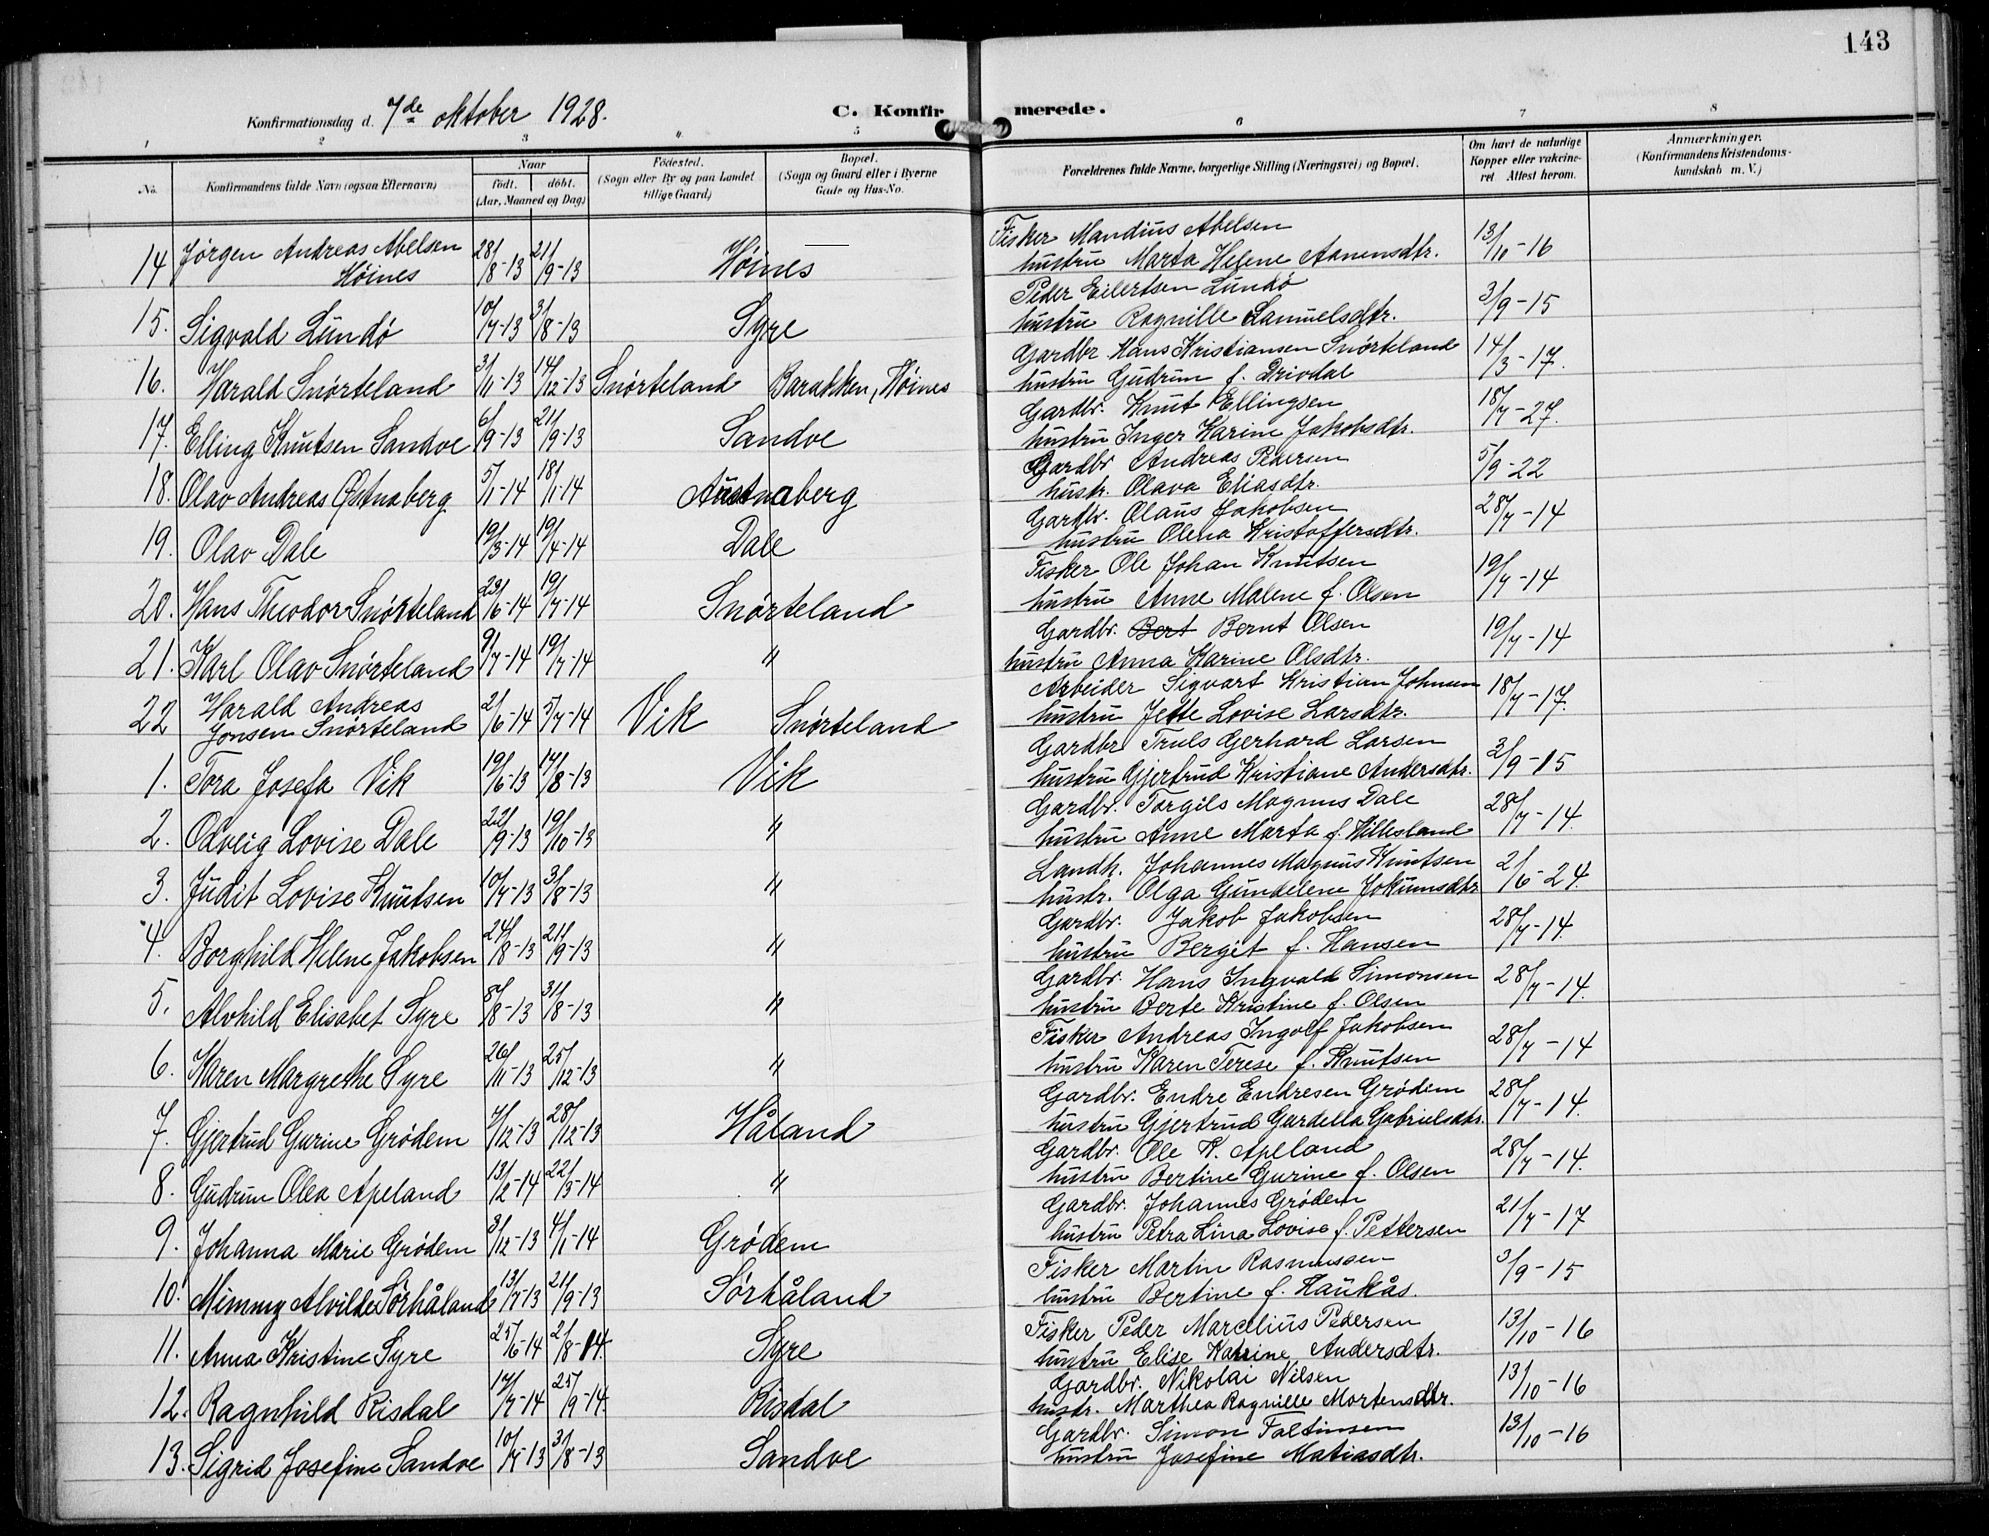 143
Konfirmationsdag d. 7de oktober 1928. C. Konfirmerede.
1 2 3 4 5 6 7 8
No. Konfirmandens fulde Navn (ogsaa Efternavn) Naar født. døbt. (Aar, Maaned og Dag) Fødested. (Sogn eller By og paa Landet tillige Gaard) Bopæl. (Sogn og Gaard eller i Byerne Gade og Hus-No. Forældrenes fulde Navne, borgerlige Stilling (Næringsvei) og Bopæl. Om havt de naturlige Kopper eller vakcineret. Attest herom. Anmærkninger. (Konfirmandens Kristendomskundskab m. V.)
14 Jörgen Andreas Abelsen Höines 28/8-13 21/9-13 Höines Fisker Mandius Abelsen 13/10-16
hustru Marta Helene Aanensdtr.
15. Sigvald Lundö 10/7-13 31/8-13 Syre Peder Eilertsen Lundö 3/9-15
hustru Ragnille Samuelsdtr.
16. Harald Snörteland 3/11-13 14/12-13 Snörteland Barakken, Höines Gardbr Hans Kristiansen Snörteland 14/3-17.
hustru Gudrun f. Drivdal
17. Elling Knutsen Sandve 6/9-13 21/9-13 Sandve Gardbr. Knut Ellingsen 18/7-27.
hustru Inger Karine Jakobsdtr.
18. Olav Andreas Östnaberg 5/1-14 18/1-14 Austnaberg Gardbr Andreas Pedersen 5/9-22
hustr. Olava Eliasdtr.
19. Olav Dale 19/3-14 19/4-14 Dale Gardbr. Olaus Jakobsen 28/7-14
hustru Olena Kristoffersdtr.
20. Hans Theodor Snörteland 29/6-14 19/7-14 Snörteland Fisker Ole Johan Knutsen 19/7-14
hustru Anne Malene f. Olsen
21. Karl Olav Snörteland 9/7-14 19/7-14 " Gardbr. Bert Bernt Olsen 19/7-14
hustru Anna Karine Olsdtr.
22 Harald Andreas Jonsen Snörteland 2/6-14 5/7-14 Vik Snörteland Arbeider Sigvart Kristian Johnsen 18/7-17.
hustru Jette Lovise Larsdtr.
1. Tora Josefa Vik 19/6-13 17/8-13 Vik Gardbr Truls Gerhard Larsen 3/9-15
hustru Gjertrud Kristiane Andersdtr.
2. Odveig Lovise Dale 22/9-13 19/10-13 " Gardbr. Torgils Magnus Dale 28/7-14.
hustru Anne Marta f. Hillesland
3. Judit Lovise Knutsen 10/7-13 31/8-13 " Landh. Johannes Magnus Knutsen 2/6-24.
hustr. Olga Gundelene Jokumsdtr
4. Borghild Helene Jakobsen 24/8-13 21/9-13 " Gardbr. Jakob Jakobsen 28/7-14.
hustru Bergit f. Hansen
5. Alvhild Elisabet Syre 8/8-13 31/8-13 " Gardbr. Hans Ingvald Simonsen 28/7-14.
hustru Berte Kristine f. Olsen
6. Karen Margrethe Syre 26/11-13 25/12-13 " Fisker Andreas Ingolf Jakobsen 28/7-14
hustru Karen Terese f. Knutsen
7. Gjertrud Gurine Grödem 7/12-13 28/12-13 Håland Gardbr. Endre Endresen Grödem 28/7-14.
hustru Gjertrud Gardella Gabrielsdtr.
8. Gudrun Olea Apeland 13/2-14 22/3-14 " Gardbr. Ole K. Apeland 28/7-14.
hustru Bertine Gurine f. Olsen
9. Johanna Marie Grödem 3/12-13 4/1-14 Grödem Gardbr. Johannes Grödem 21/7-17
hustru Petra Lina Lovise f. Pettersen
10. Mimmy Alvilde Sörhåland 13/7-13 21/9-13 Sörhåland Fisker Martin Rasmussen 3/9-15
hustru Bertine f. Haukås.
11. Anna Kristine Syre 25/6-14 2/8-14. Syre Fisker Peder Marcelius Pedersen 13/10-16
hustru Elise Katrine Andersdtr.
12. Ragnhild Risdal 17/7-14 25/9-14. Risdal Gardbr. Nikolai Nilsen 13/10-16
hustr. Marthea Ragnille Mortensdtr.
13. Sigrid Josefine Sandve 10/7-13 31/8-13 Sandve Gardbr. Simon Faltinsen 13/10-16
hustru Josefine Matiasdtr.